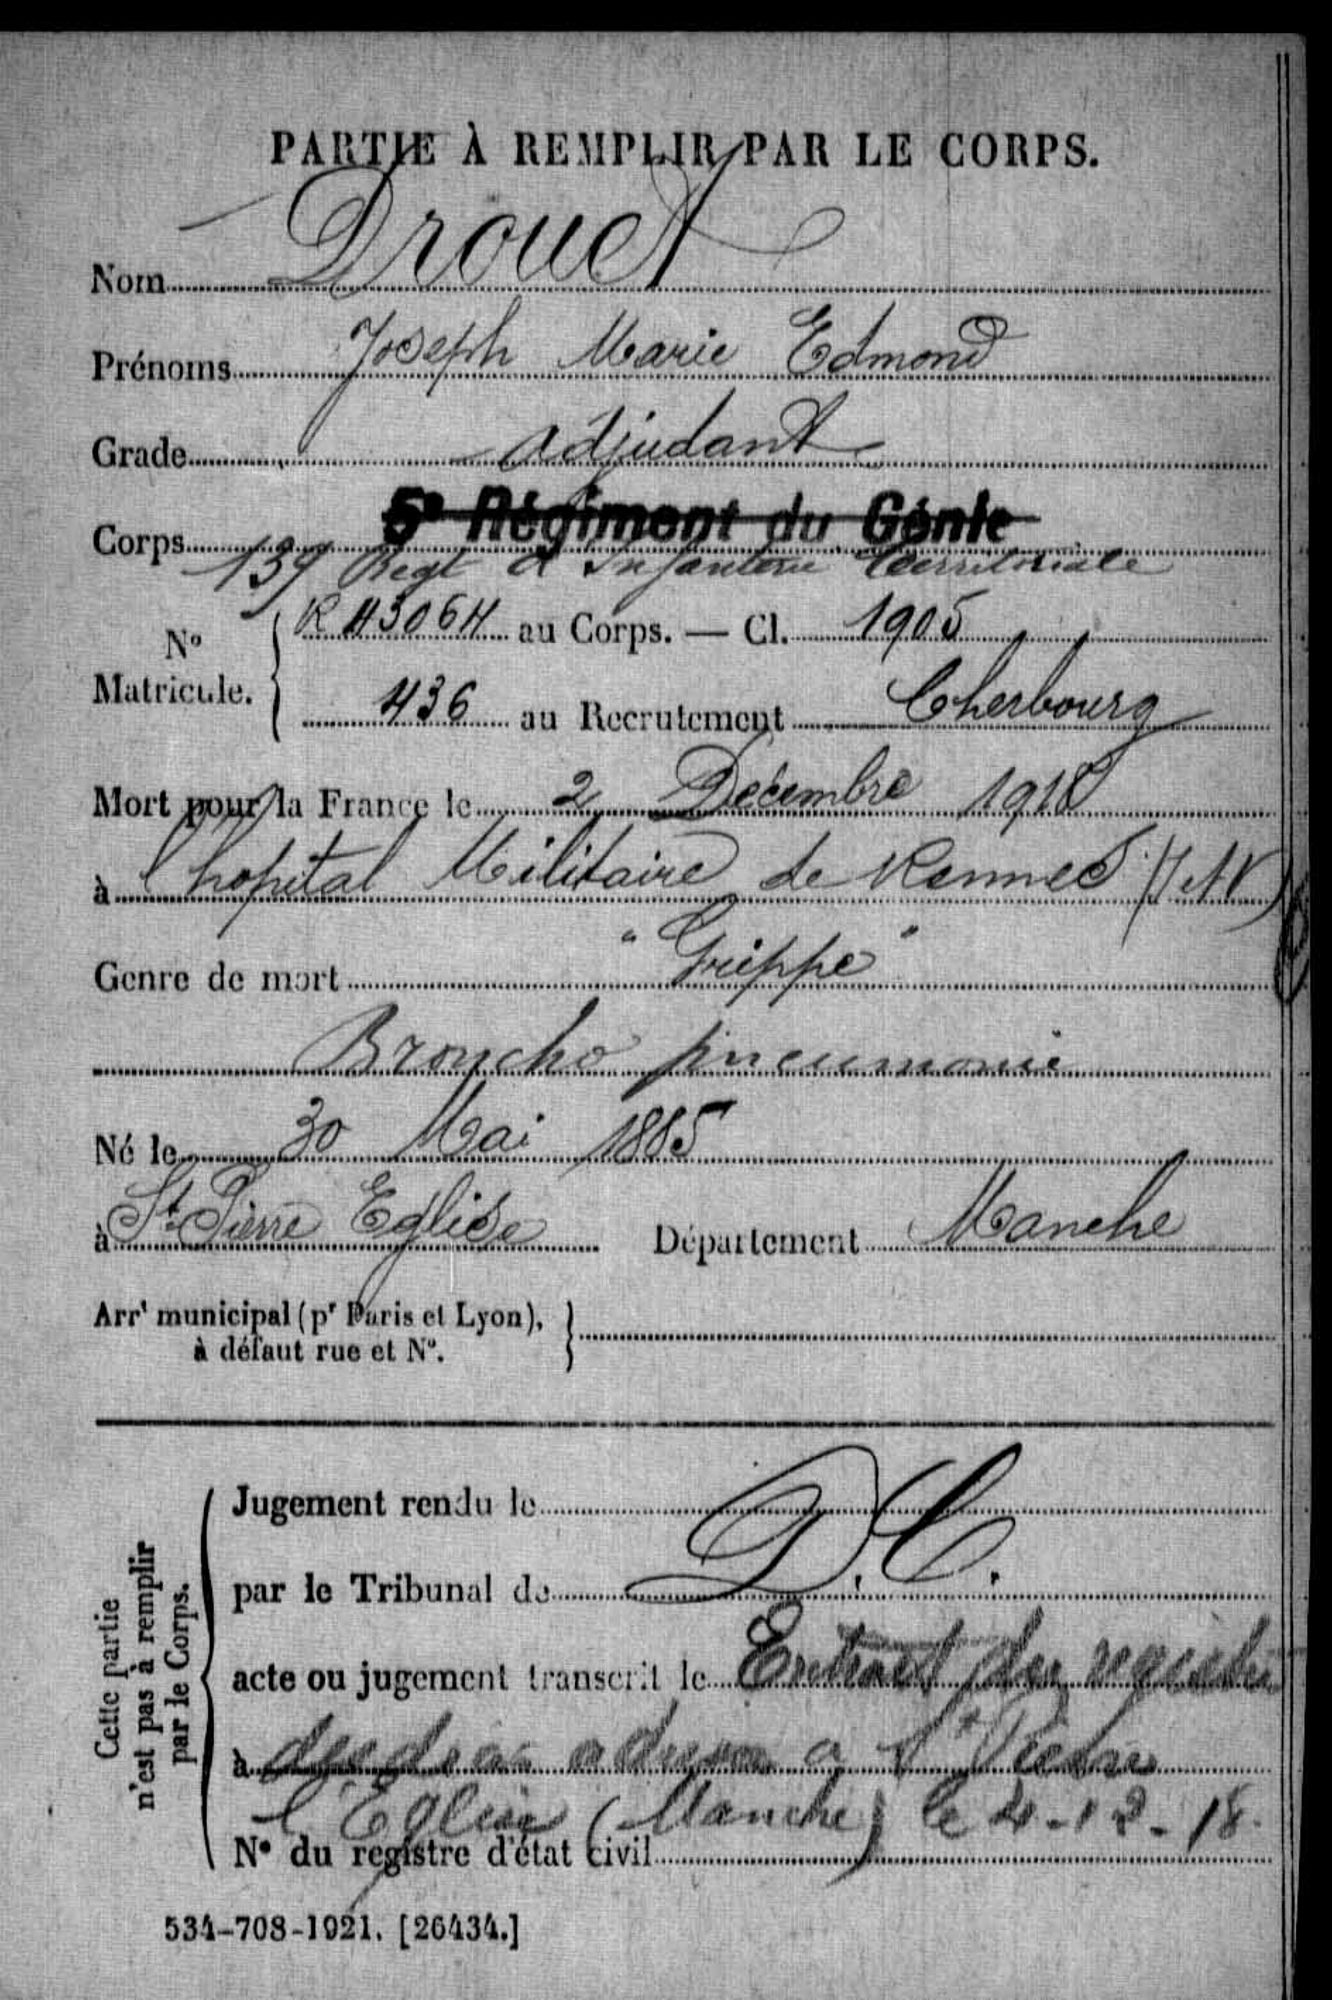 PARTIE À REMPLIR PAR LE CORPS.
Nom Drouet
Prénoms Joseph Marie Edmond
Grade adjudant
5e Régiment du Génie
Corps 139 Regt d'Infanterie Territoriale
No Matricule. R 43064 au Corps. — Cl. 1905
436 au Recrutement Cherbourg
Mort pour la France le 2 Décembre 1918
à l'hopital Militaire de Rennes (I et V)
Genre de mort "Grippe"
Broncho pneumonie
Né le 30 Mai 1885
à St Pierre Eglise Département Manche
Arrt municipal (pr Paris et Lyon),
à défaut rue et No.
Cette partie
n'est pas à remplir
par le Corps.
Jugement rendu le
par le Tribunal de D.C.
acte ou jugement transcrit le Extrait du registre
à des adressé a St Pierre
l'Eglise (Manche) le 4-12-18.
No du registre d'état civil
534-708-1921. [26434.]